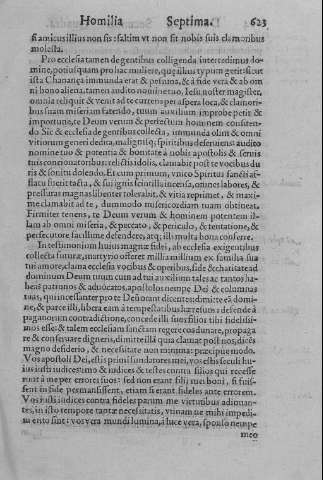 Homilia Septima. 623
si amicus illius non sis: saltim vt non sit nobis suis clamoribus
molesta.
Pro ecclesia tamen de gentibus colligenda intercedimus do-
mine, potius quam pro hac muliere, quę illius typum gerit: sicut
ista Chananęa immunda erat & peruina, & à fide vera & ab om
ni bono aliena, tamen audito nomine tuo, Iesu noster magister,
omnia reliquit & venit ad te currens per aspera loca, & clamori-
bus suam miseriam fatendo, tuum auxilium improbe petit &
importune, te Deum verum & perfectum hominem confiten-
do Sic & ecclesia de gentibus collecta, immunda olim & omni
vitiorum generi dedita, malignisq; spiritibus deseruiens: audito
nomine tuo & potentia & bonitate à nobis apostolis & seruis
tuis concionatoribus: relictis idolis, clamabit post te vocibus du
ris & sonitu dolendo. Et cum primum, vnico Spiritus sancti af-
flatu fuerit tacta, & sui ignis scintilla incensa, omnes labores, &
pressuras magnas libenter tolerabit, & vitia reprimet, & maxi-
me clamabit ad te, dummodo misericordiam tuam obtineat.
Firmiter tenens, te Deum verum & hominem potentem il-
lam ab omni miseria, & peccato, & periculo, & tentatione, &
persecutore facillime defendere, atq; illi multa bona conferre.
In testimonium huius magnæ fidei, ab ecclesia exigentibus
collecta futuræ, martyrio offeret millia millium ex familia sua
tui amore, clama ecclesia vocibus & operibus, fide & charitate ad
dominum Deum tuum cum ad tui auxilium tales ac tantos ha-
beas patronos & aduocatos, apostolos nempe Dei & columnas
tuas, qui incessanter pro te Deum orant dicentes: dimitte eã domi-
ne, & parce illi, libera eam à tempestatibus hæresum: defende à
paganorum contraditione, concede illi suos filios tibi fidelissi-
mos esse: & talem ecclesiam sanctam regere eos dunate, propaga
re & conseruare digneris, dimitte illã quia clamat post nos, dicẽs
magno desiderio, & necessitate non minima: præcipue modo.
Vos apostoli Dei, estis primi fundatores mei, vos estis seculi hu-
ius iusti iudices: imo & iudices & testes contra filios qui recesse
runt à me per errores suos: sed non erant filij mei boni, si fuis-
sent in fide permansissent, etiam si erant fideles ante errorem.
Vos iusti iudices contra fideles parum me virtutibus adiouan-
tes, in isto tempore tantæ necessitatis, vtinam ne mihi impedi-
mento sint: vos vera mundi lumina, à luce vera, sponso nempe
meo